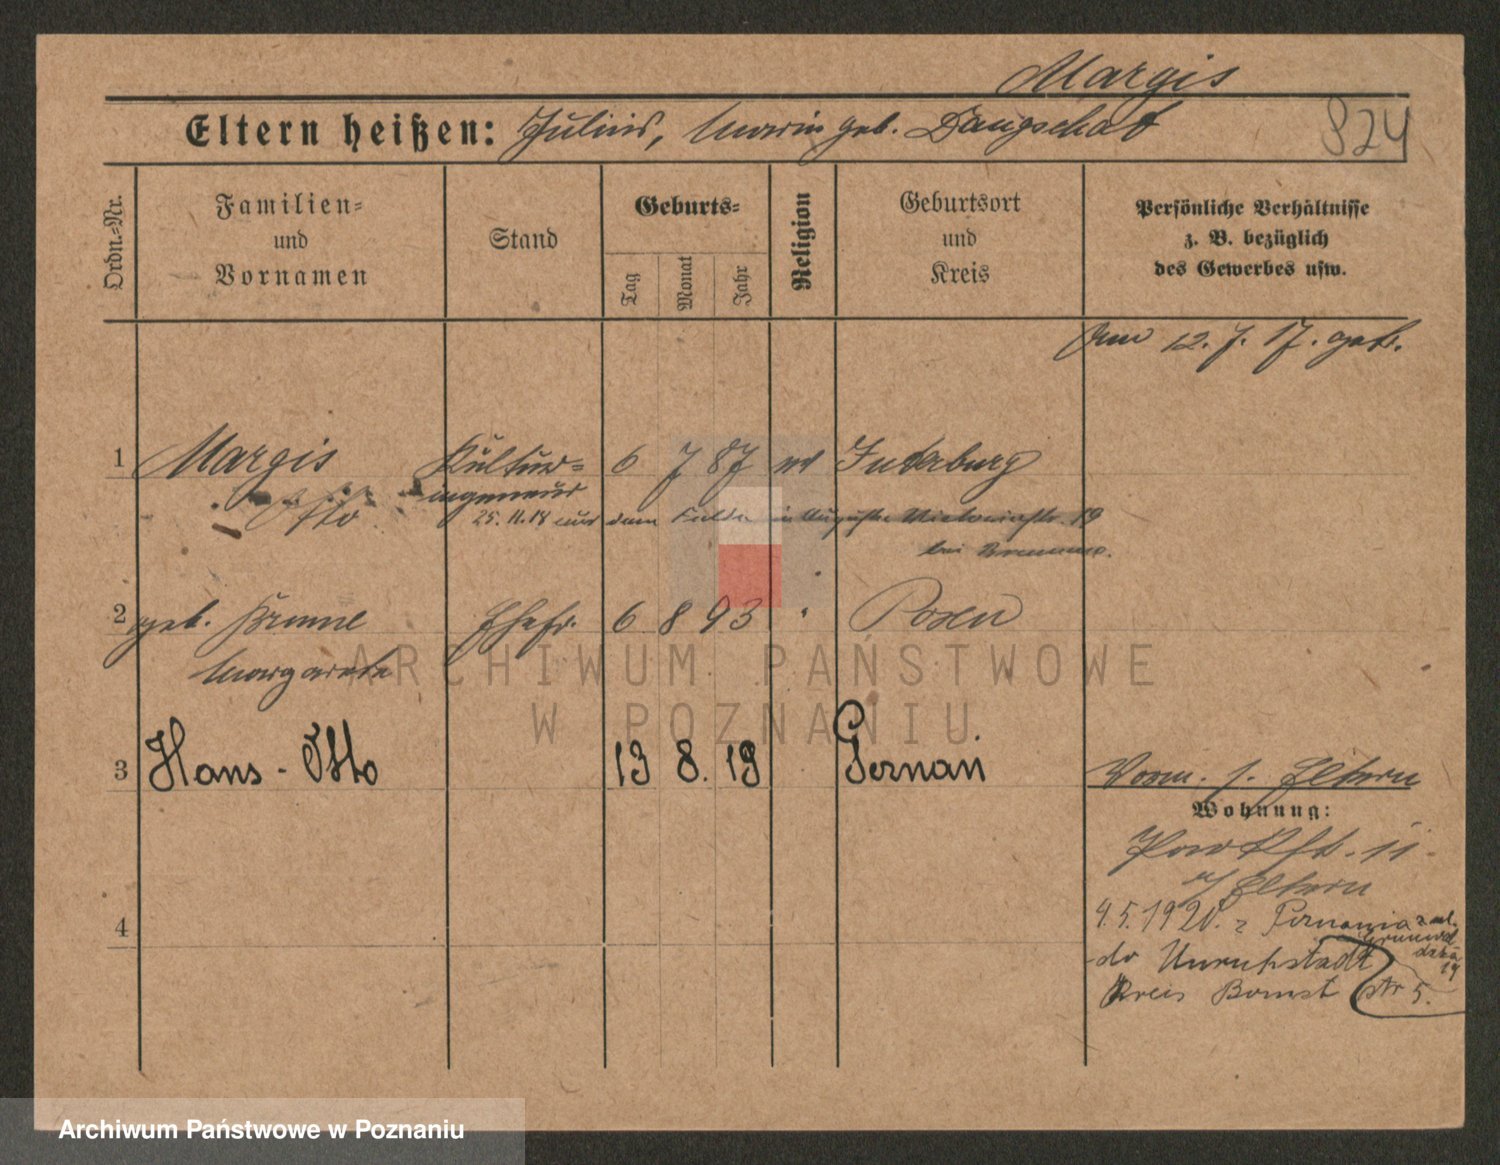 Margis
Eltern heißen: Julius, Marie geb. Dangschat
824
Ordn.=Nr.
Familien=
und
Vornamen
Stand
Geburts=
Tag
Monat
Jahr
Religion
Geburtsort
und
Kreis
Persönliche Verhältnisse
z. B. bezüglich
des Gewerbes usw.
12. 7. 17. getr.
1 Margis Kultur= 6 7 87 ev Insterburg
Otto ingenieur
25. 11. 18 aus dem Felde in Auguste Viktoriastr. 19
bei Brumme.
2 geb. Brume Ehefr. 6 8 93 Posen
Margarete
ARCHIWUM PAŃSTWOWE
W POZNANIU
3 Hans - Otto 13 8. 19 Poznań
Vorm. s. Eltern
Wohnung:
Parkstr. 11
b/ Eltern
4 4.5.1920. z Poznania
do Unruhstadt
Kreis Bomst str 5.
Archiwum Państwowe w Poznaniu